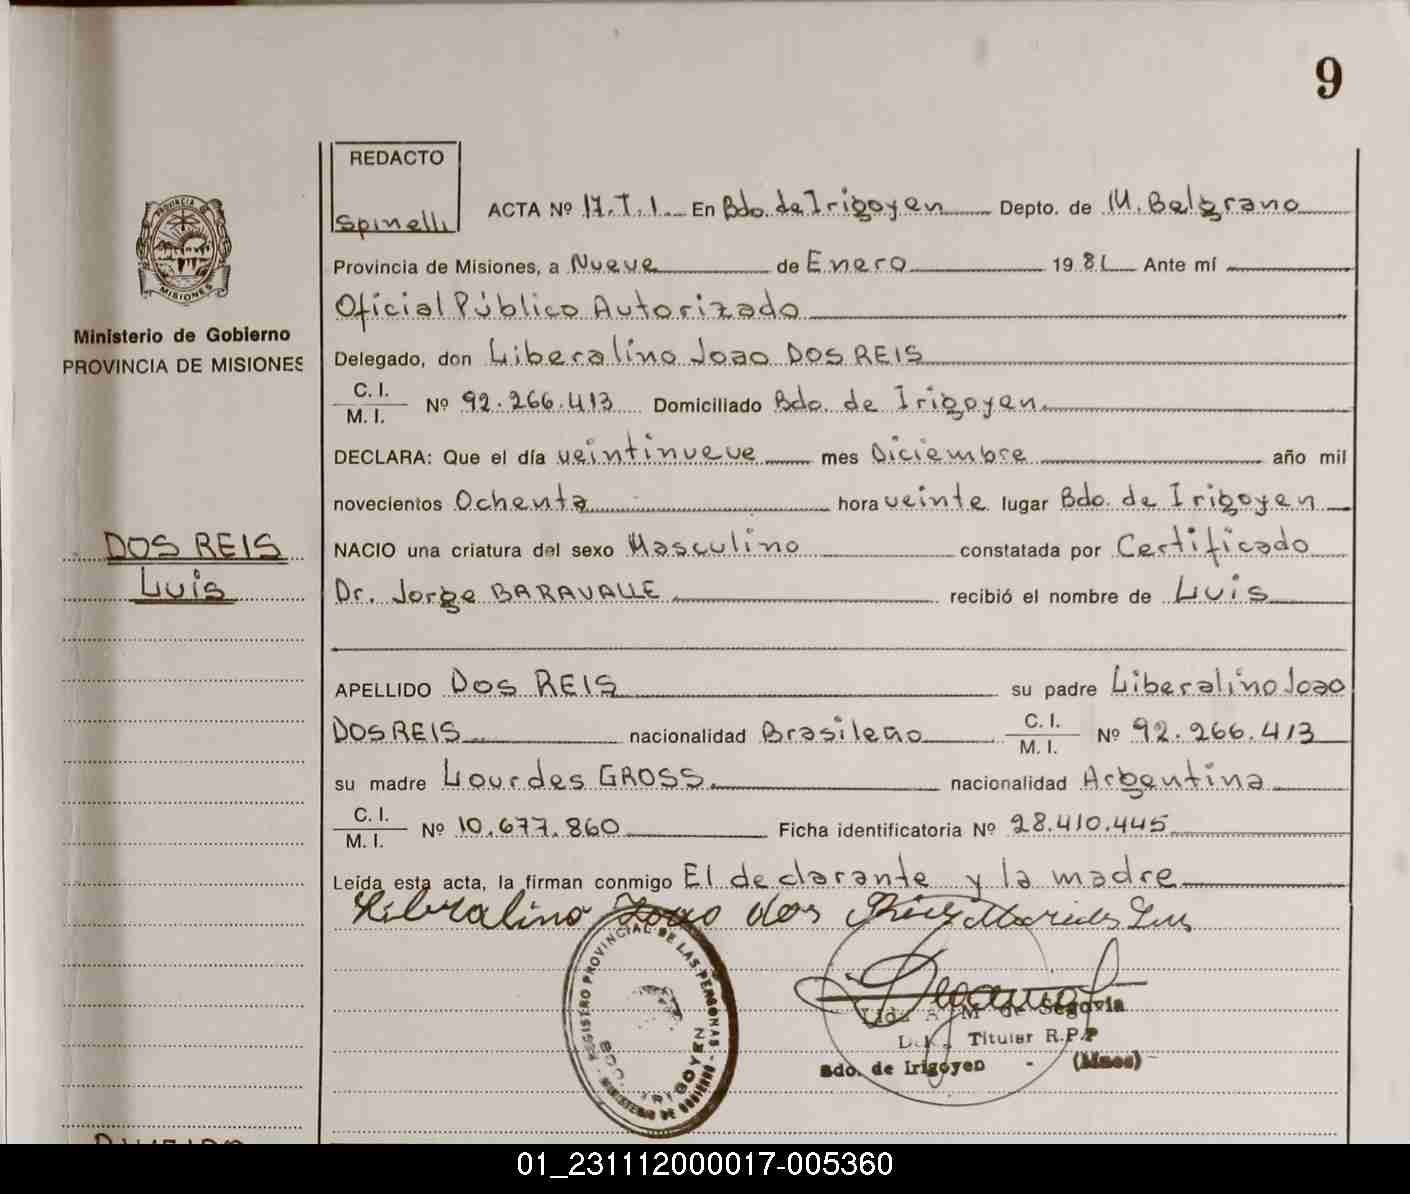 9
REDACTO
Spinelli
ACTA Nº 17.T.1. En Bdo. de Irigoyen Depto. de M. Belgrano
Provincia de Misiones, a Nueve de Enero 1981 Ante mí
Oficial Público Autorizado
Delegado, don Liberalino Joao DOS REIS
C. I.
M. I. Nº 92.266.413 Domiciliado Bdo. de Irigoyen
DECLARA: Que el día veintinueve mes Diciembre año mil
novecientos Ochenta hora veinte lugar Bdo. de Irigoyen
NACIO una criatura del sexo Masculino constatada por Certificado
Dr. Jorge BARAVALLE recibió el nombre de Luis
APELLIDO Dos REIS su padre Liberalino Joao
DOS REIS nacionalidad Brasileño C. I. M. I. Nº 92.266.413
su madre Lourdes GROSS. nacionalidad Argentina
C. I.
M. I. Nº 10.677.860 Ficha identificatoria Nº 28.410.445
Leída esta acta, la firman conmigo El declarante y la madre
Liberalino Joao dos Reis
PROVINCIA DE
MISIONES
Ministerio de Gobierno
PROVINCIA DE MISIONES
DOS REIS
Luis
REGISTRO PROVINCIAL DE LAS PERSONAS
MINISTERIO DE GOBIERNO
BDO. IRIGOYEN
M de Segovia
Titular R.P.P
Bdo. de Irigoyen - (Mnes)
01_231112000017-005360